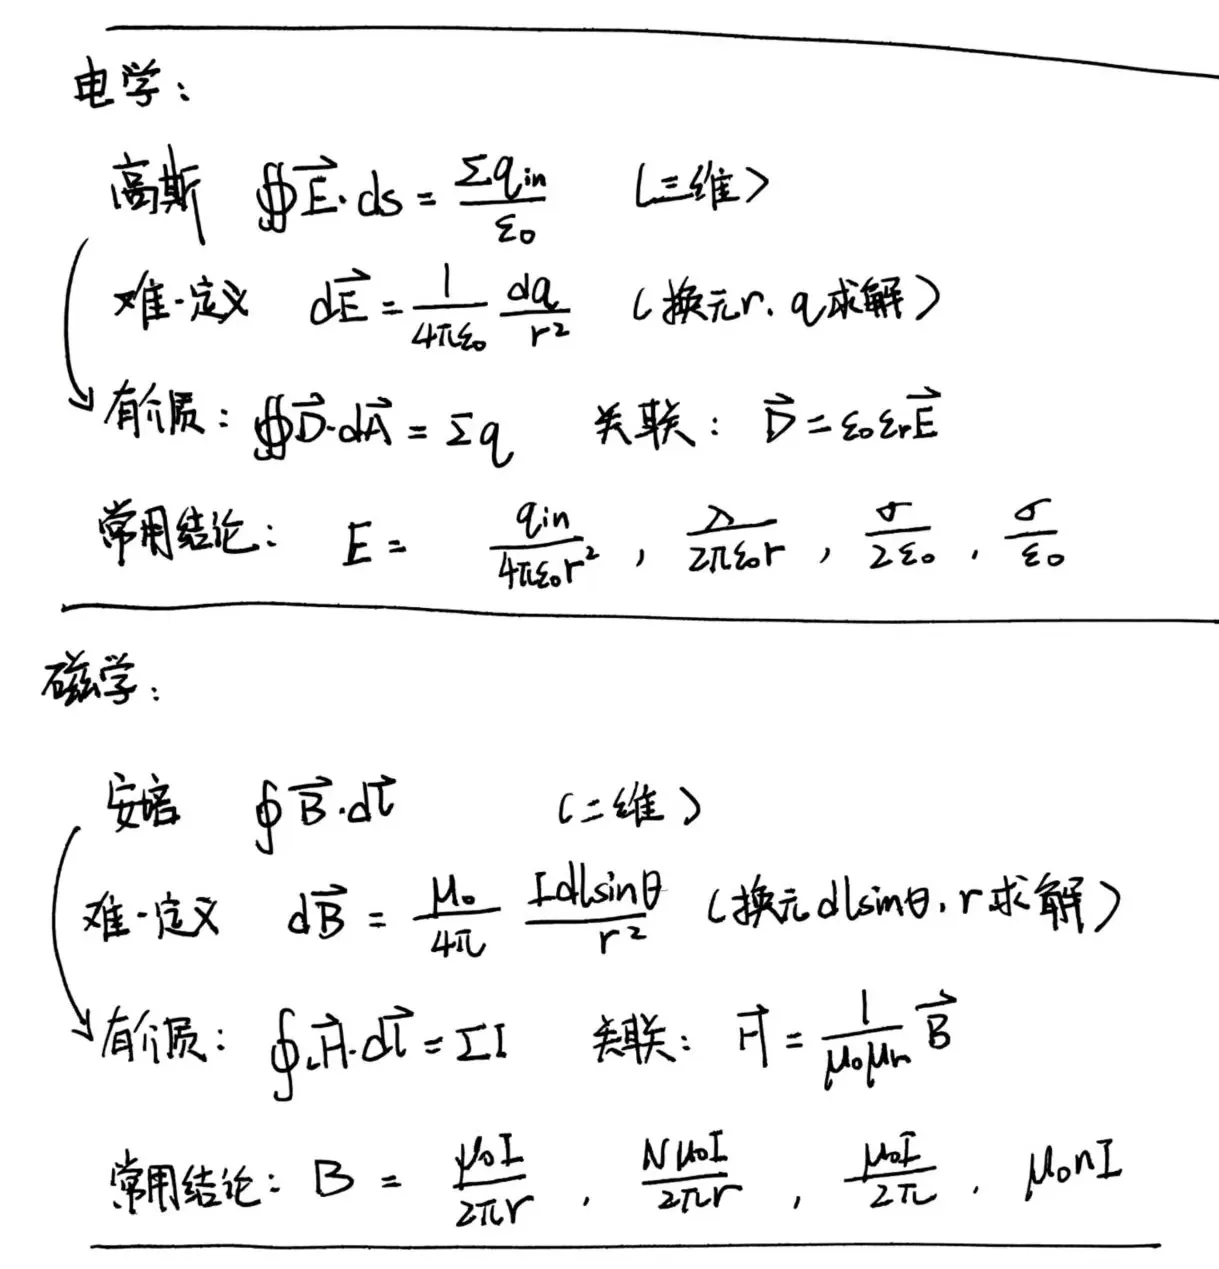 电学：
高斯 ∯E⃗·ds = Σq_in/ε₀ （三维）
难-定义 dE⃗ = 1/4πε₀ dq/r² （换元r、q求解）
有介质：∯D⃗·dA⃗ = Σq 关联：D⃗ = ε₀εᵣE⃗
常用结论：E = q_in/4πε₀r² ， λ/2πε₀r ， σ/2ε₀ ， σ/ε₀
磁学：
安培 ∮B⃗·dl⃗ （二维）
难-定义 dB⃗ = μ₀/4π Idlsinθ/r² （换元dlsinθ、r求解）
有介质：∮_L H⃗·dl⃗ = ΣI 关联：H⃗ = 1/μ₀μᵣ B⃗
常用结论：B = μ₀I/2πr ， Nμ₀I/2πr ， μ₀I/2π ， μ₀nI